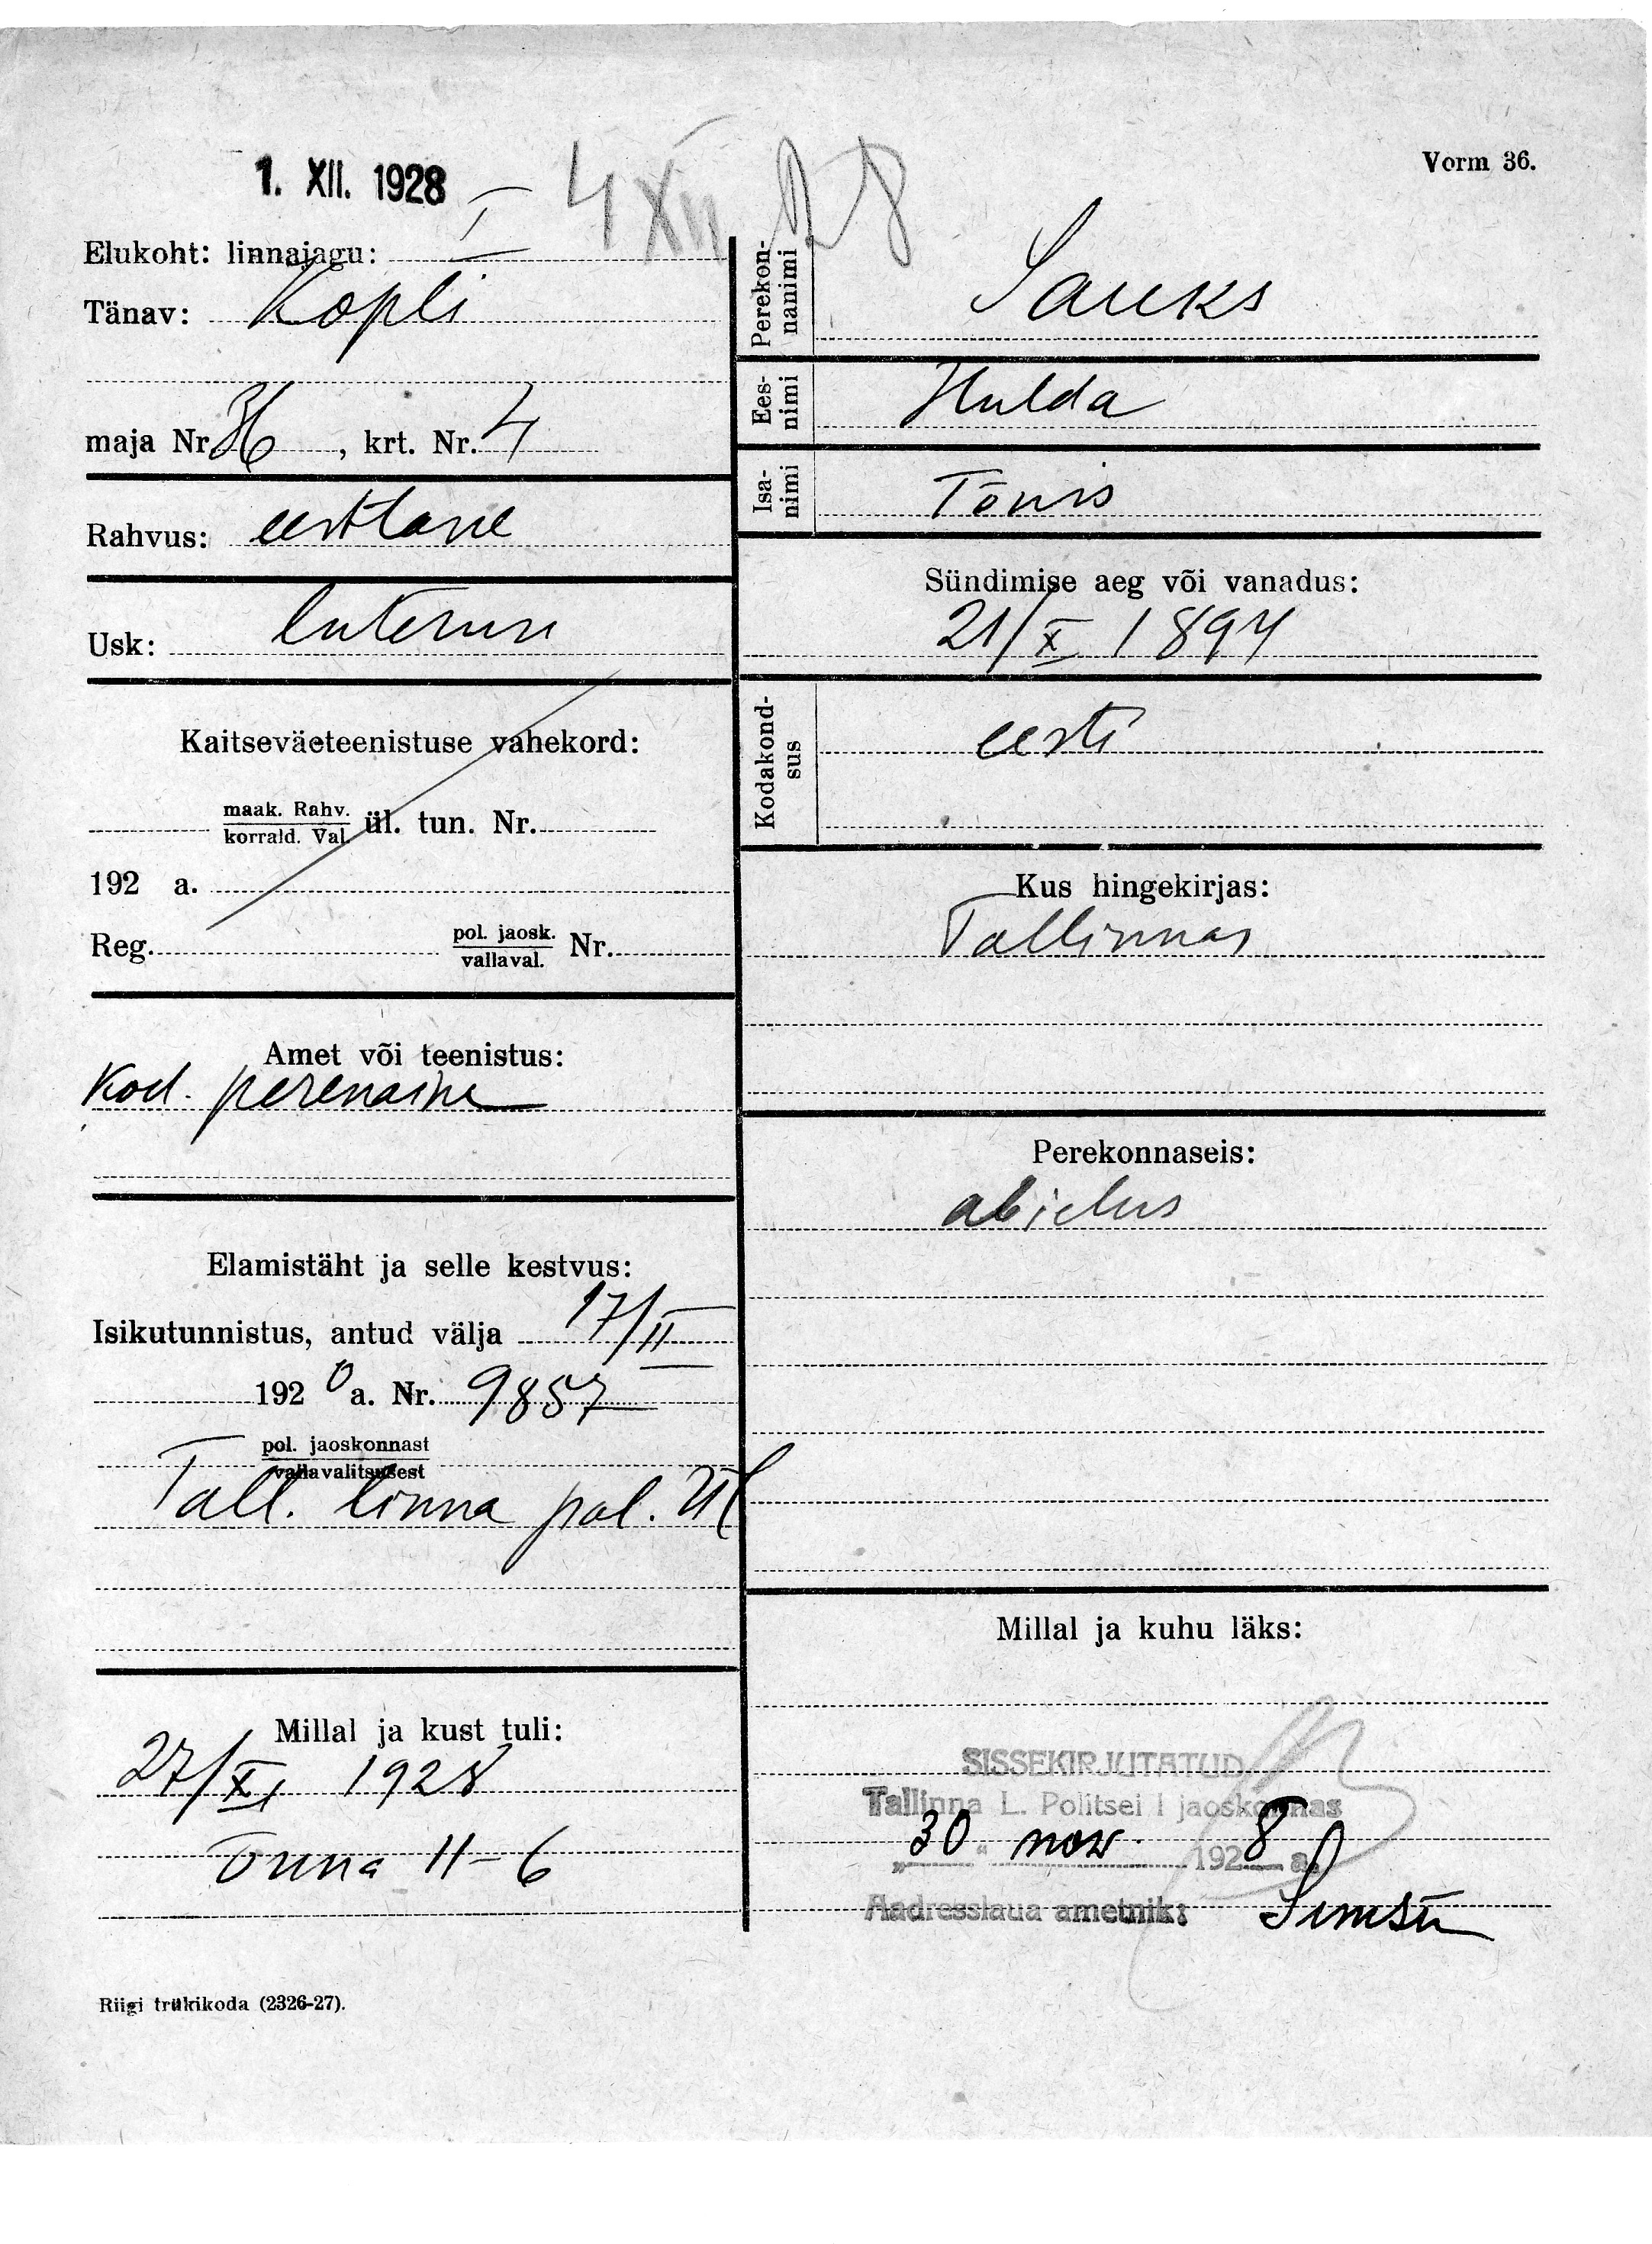 1. XII. 1928
4 XII 28
Vorm 36.
Elukoht: linnajagu: I
Tänav: Kopli
maja Nr. 36, krt. Nr. 4
Rahvus: eestlane
Usk: luterusu
Kaitseväeteenistuse vahekord:
maak. Rahv.
korrald. Val. ül. tun. Nr.
192 a.
Reg. pol. jaosk.
vallaval. Nr.
Amet või teenistus:
Kod. perenaine
Elamistäht ja selle kestvus:
Isikutunnistus, antud välja 17/II
1920 a. Nr. 9857
pol. jaoskonnast
vallavalitsusest
Tall. linna pol.
Millal ja kust tuli:
27/XI 1928
Tõnna 11-6
Riigi trükikoda (2326-27).
Perekon-
nanimi
Sauks
Ees-
nimi
Hulda
Isa-
nimi
Tõnis
Sündimise aeg või vanadus:
21/X 1894
Kodakond-
sus
eesti
Kus hingekirjas:
Tallinnas
Perekonnaseis:
abielus
Millal ja kuhu läks:
SISSEKIRJUTATUD
Tallinna L. Politsei I jaoskonnas
"30" nov. 1928 a.
Aadresslaua ametnik: